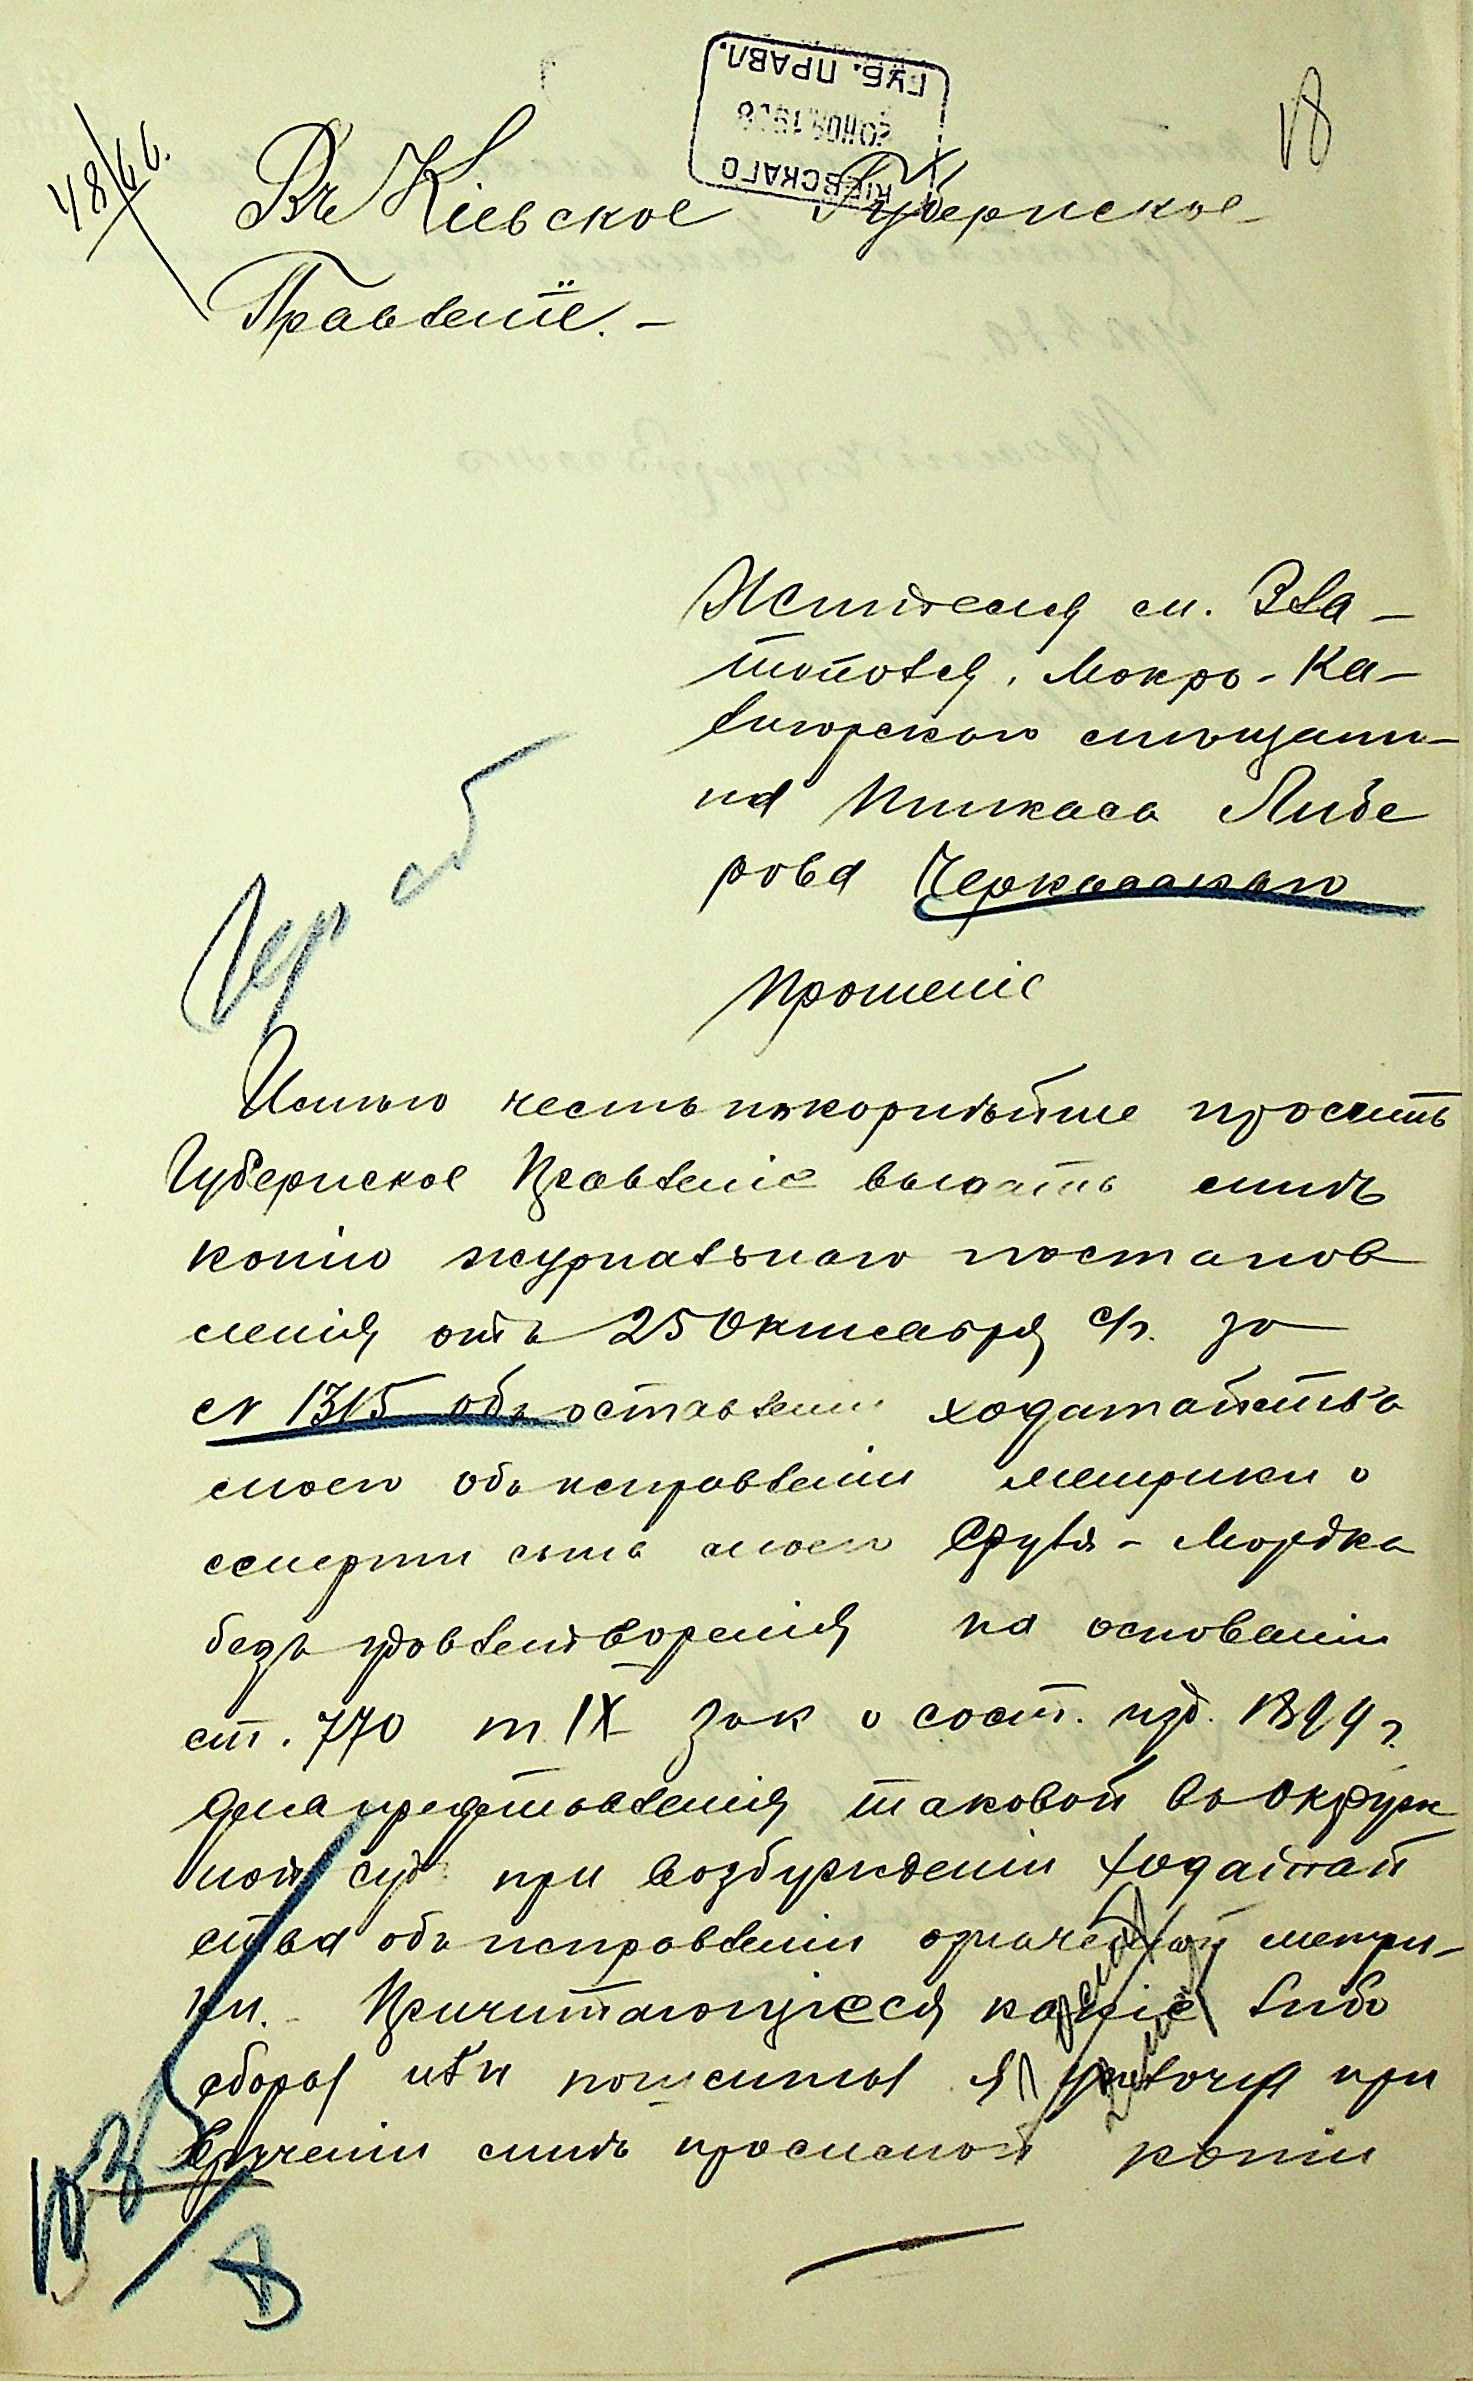 КІЕВСКАГО
20 НОЯ. 1908
ГУБ. ПРАВЛ.
18
Въ Кіевское Губернское
Правленіе. —
Жителя м. Зла-
тополя, Мокро-Ка-
лигорскаго мѣщани-
на Пинкаса Либе
рова Черкасскаго
Прошеніе
Имѣю честь покорнѣйше просить
Губернское Правленіе выдать мнѣ
копію журнальнаго постанов
ленія отъ 25 Октября с/г. за
№ 1315 объ оставленіи ходатайства
моего объ исправленіи метрики о
смерти сына моего Сруля-Мордка
безъ удовлетворенія на основаніи
ст. 770 т. IX Зак о сост. изд. 1899 г.
для представленія таковой въ Окруж
ной судъ при возбужденіи ходатай
ства объ исправленіи означенной метри-
ки. Причитающіеся какіе либо
сборы или пошлины я уплачу при
врученіи мнѣ просимой копіи